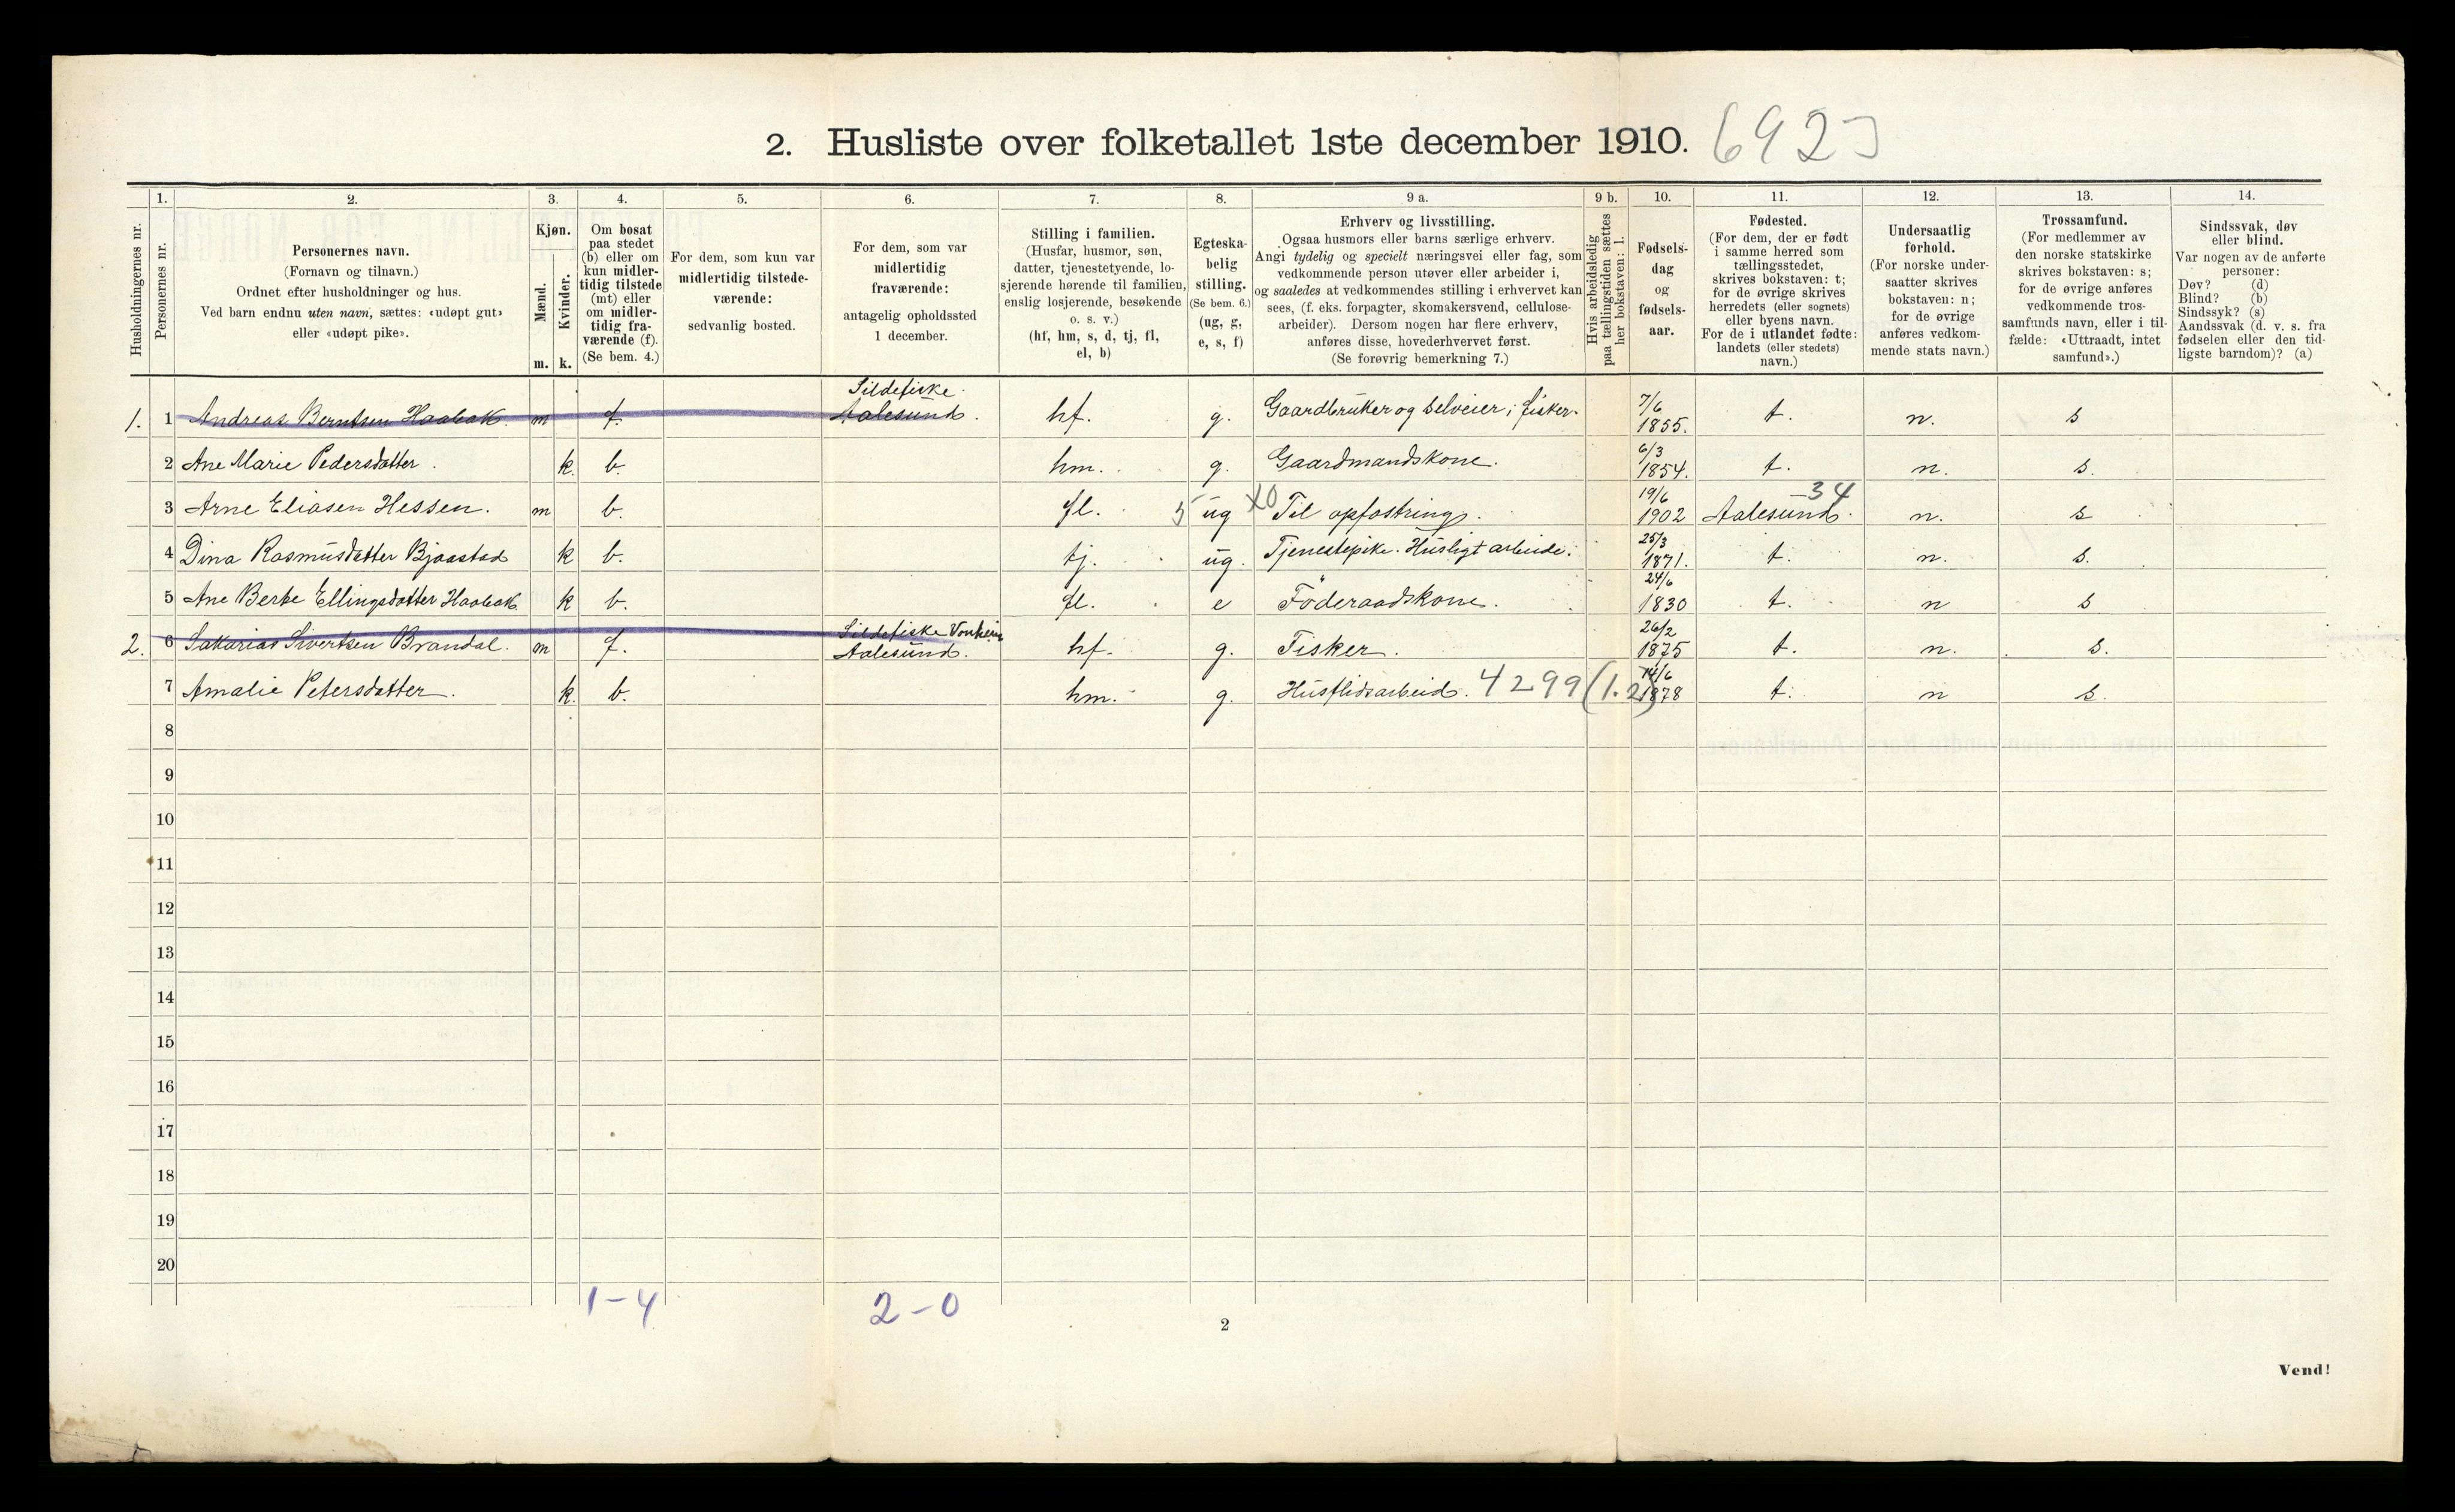 2. Husliste over folketallet 1ste december 1910.
Husholdningernes nr.
1.
Personernes nr.
2.
Personernes navn.
(Fornavn og tilnavn.)
Ordnet efter husholdninger og hus.
Ved barn endnu uten navn, sættes: «udøpt gut»
eller «udøpt pike».
3.
Kjøn.
Mænd.
Kvinder.
m. k.
4.
Om bosat
paa stedet
(b) eller om
kun midler-
tidig tilstede
(mt) eller
om midler-
tidig fra-
værende (f).
(Se bem. 4.)
5.
For dem, som kun var
midlertidig tilstede-
værende:
sedvanlig bosted.
6.
For dem, som var
midlertidig
fraværende:
antagelig opholdssted
1 december.
7.
Stilling i familien.
(Husfar, husmor, søn,
datter, tjenestetyende, lo-
sjerende hørende til familien,
enslig losjerende, besøkende
o. s. v.)
(hf, hm, s, d, tj, fl,
el, b)
8.
Egteska-
belig
stilling.
(Se bem. 6.)
(ug, g,
e, s, f)
9 a.
Erhverv og livsstilling.
Ogsaa husmors eller barns særlige erhverv.
Angi tydelig og specielt næringsvei eller fag, som
vedkommende person utøver eller arbeider i,
og saaledes at vedkommendes stilling i erhvervet kan
sees, (f. eks. forpagter, skomakersvend, cellulose-
arbeider). Dersom nogen har flere erhverv,
anføres disse, hovederhvervet først.
(Se forøvrig bemerkning 7.)
9 b.
Hvis arbeidsledig
paa tællingstiden sættes
her bokstaven: l.
10.
Fødsels-
dag
og
fødsels-
aar.
11.
Fødested.
(For dem, der er født
i samme herred som
tællingsstedet,
skrives bokstaven: t;
for de øvrige skrives
herredets (eller sognets)
eller byens navn.
For de i utlandet fødte:
landets (eller stedets)
navn.)
12.
Undersaatlig
forhold.
(For norske under-
saatter skrives
bokstaven: n;
for de øvrige
anføres vedkom-
mende stats navn.)
13.
Trossamfund.
(For medlemmer av
den norske statskirke
skrives bokstaven: s;
for de øvrige anføres
vedkommende tros-
samfunds navn, eller i til-
fælde: «Uttraadt, intet
samfund».)
14.
Sindssvak, døv
eller blind.
Var nogen av de anførte
personer:
Døv? (d)
Blind? (b)
Sindssyk? (s)
Aandssvak (d. v. s. fra
fødselen eller den tid-
ligste barndom)? (a)
1. 1 Andreas Berntsen Haabak. m f. Sildefiske Aalesund. hf. g. Gaardbruker og selveier; fisker. 7/6 1855. t. n. s
2 Ane Marie Pedersdatter. k. b. hm. g. Gaardmandskone. 6/3 1854. t. n. s.
3 Arne Eliasen Hessen. m b. fl. 5 ug X0 Til opfostring. 19/6 1902 Aalesund. 34 n. s
4 Dina Rasmusdatter Bjaastad k b. tj. ug. Tjenestepike. Husligt arbeide. 25/3 1871. t. n. s.
5 Ane Berte Ellingsdatter Haabak k b. fl. e Föderaadskone. 24/6 1830 t. n s
2. 6 Sakarias Sivertsen Brandal. m f. Sildefiske Aalesund. hf. g. Fisker. 26/2 1875 t. n. s.
7 Amalie Petersdatter. k. b. hm. g. Husflidsarbeid. 4299 (1.2) 14/6 1878 t. n s.
8
9
10
11
12
13
14
15
16
17
18
19
20
1-4 2-0
2
Vend!